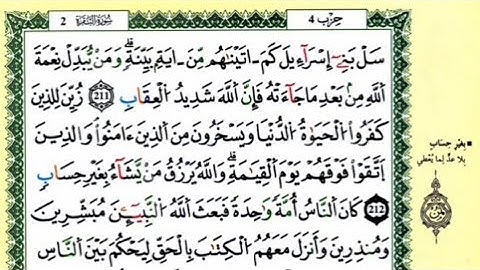 سُورَةُ البَقَرَة 2
حِزْب 4
سَلْ بَنِےٓ إِسْرَآءِيلَ كَمَ ـ اتَيْنَٰهُم مِّنَ ـ ايَةِۢ بَيِّنَةٖۖ وَمَنْ يُّبَدِّلْ نِعْمَةَ
اَ۬للَّهِ مِنۢ بَعْدِ مَا جَآءَتْهُ فَإِنَّ اَ۬للَّهَ شَدِيدُ اُ۬لْعِقَابِۖ 211 زُيِّنَ لِلذِينَ
كَفَرُواْ اُ۬لْحَيَوٰةُ اُ۬لدُّنْيَا وَيَسْخَرُونَ مِنَ اَ۬لذِينَ ءَامَنُواْۖ وَالذِينَ
اَ۪تَّقَوْاْ فَوْقَهُمْ يَوْمَ اَ۬لْقِيَٰمَةِۖ وَاللَّهُ يَرْزُقُ مَنْ يَّشَآءُ بِغَيْرِ حِسَابٖۖ
212 كَانَ اَ۬لنَّاسُ أُمَّةٗ وَٰحِدَةٗ فَبَعَثَ اَ۬للَّهُ اُ۬لنَّبِيٓـِٕۧنَ مُبَشِّرِينَ
وَمُنذِرِينَ وَأَنزَلَ مَعَهُمُ اُ۬لْكِتَٰبَ بِالْحَقِّ لِيَحْكُمَ بَيْنَ اَ۬لنَّاسِ
بِغَيْرِ حِسَابٍ
بلا عدٍّ لِما يُعْطي